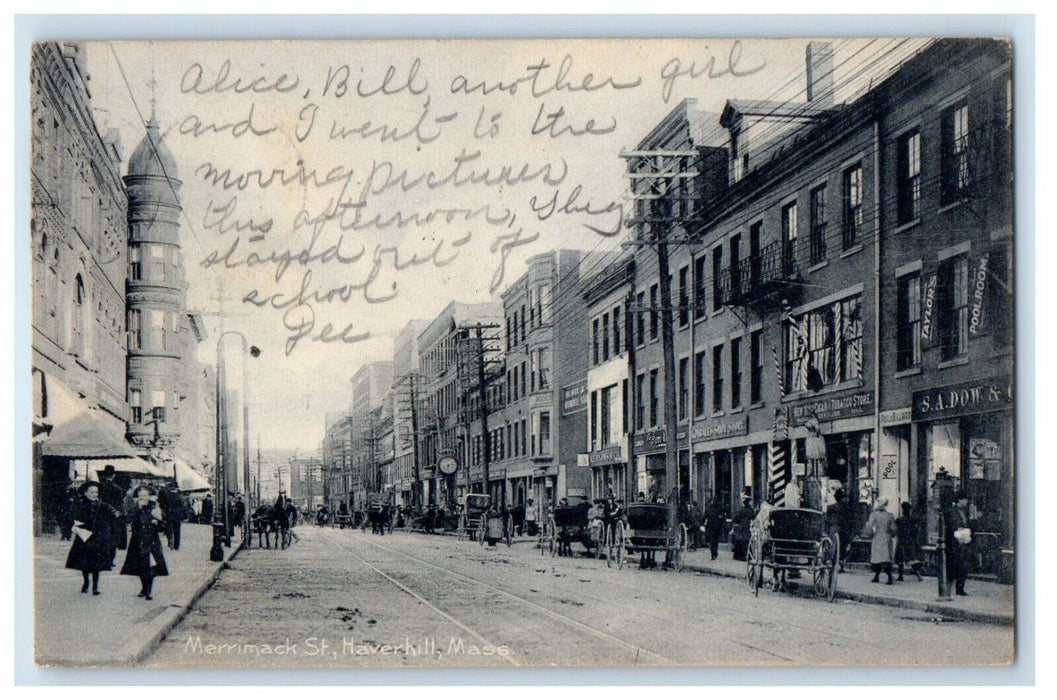 Alice, Bill, another girl
and I went to the
moving pictures
this afternoon, They
stayed out of
school.
Dee
TAYLOR'S
POOL ROOM
S.A. DOW &
CIGAR
TOBACCO STORE.
POOL
Merrimack St., Haverhill, Mass.